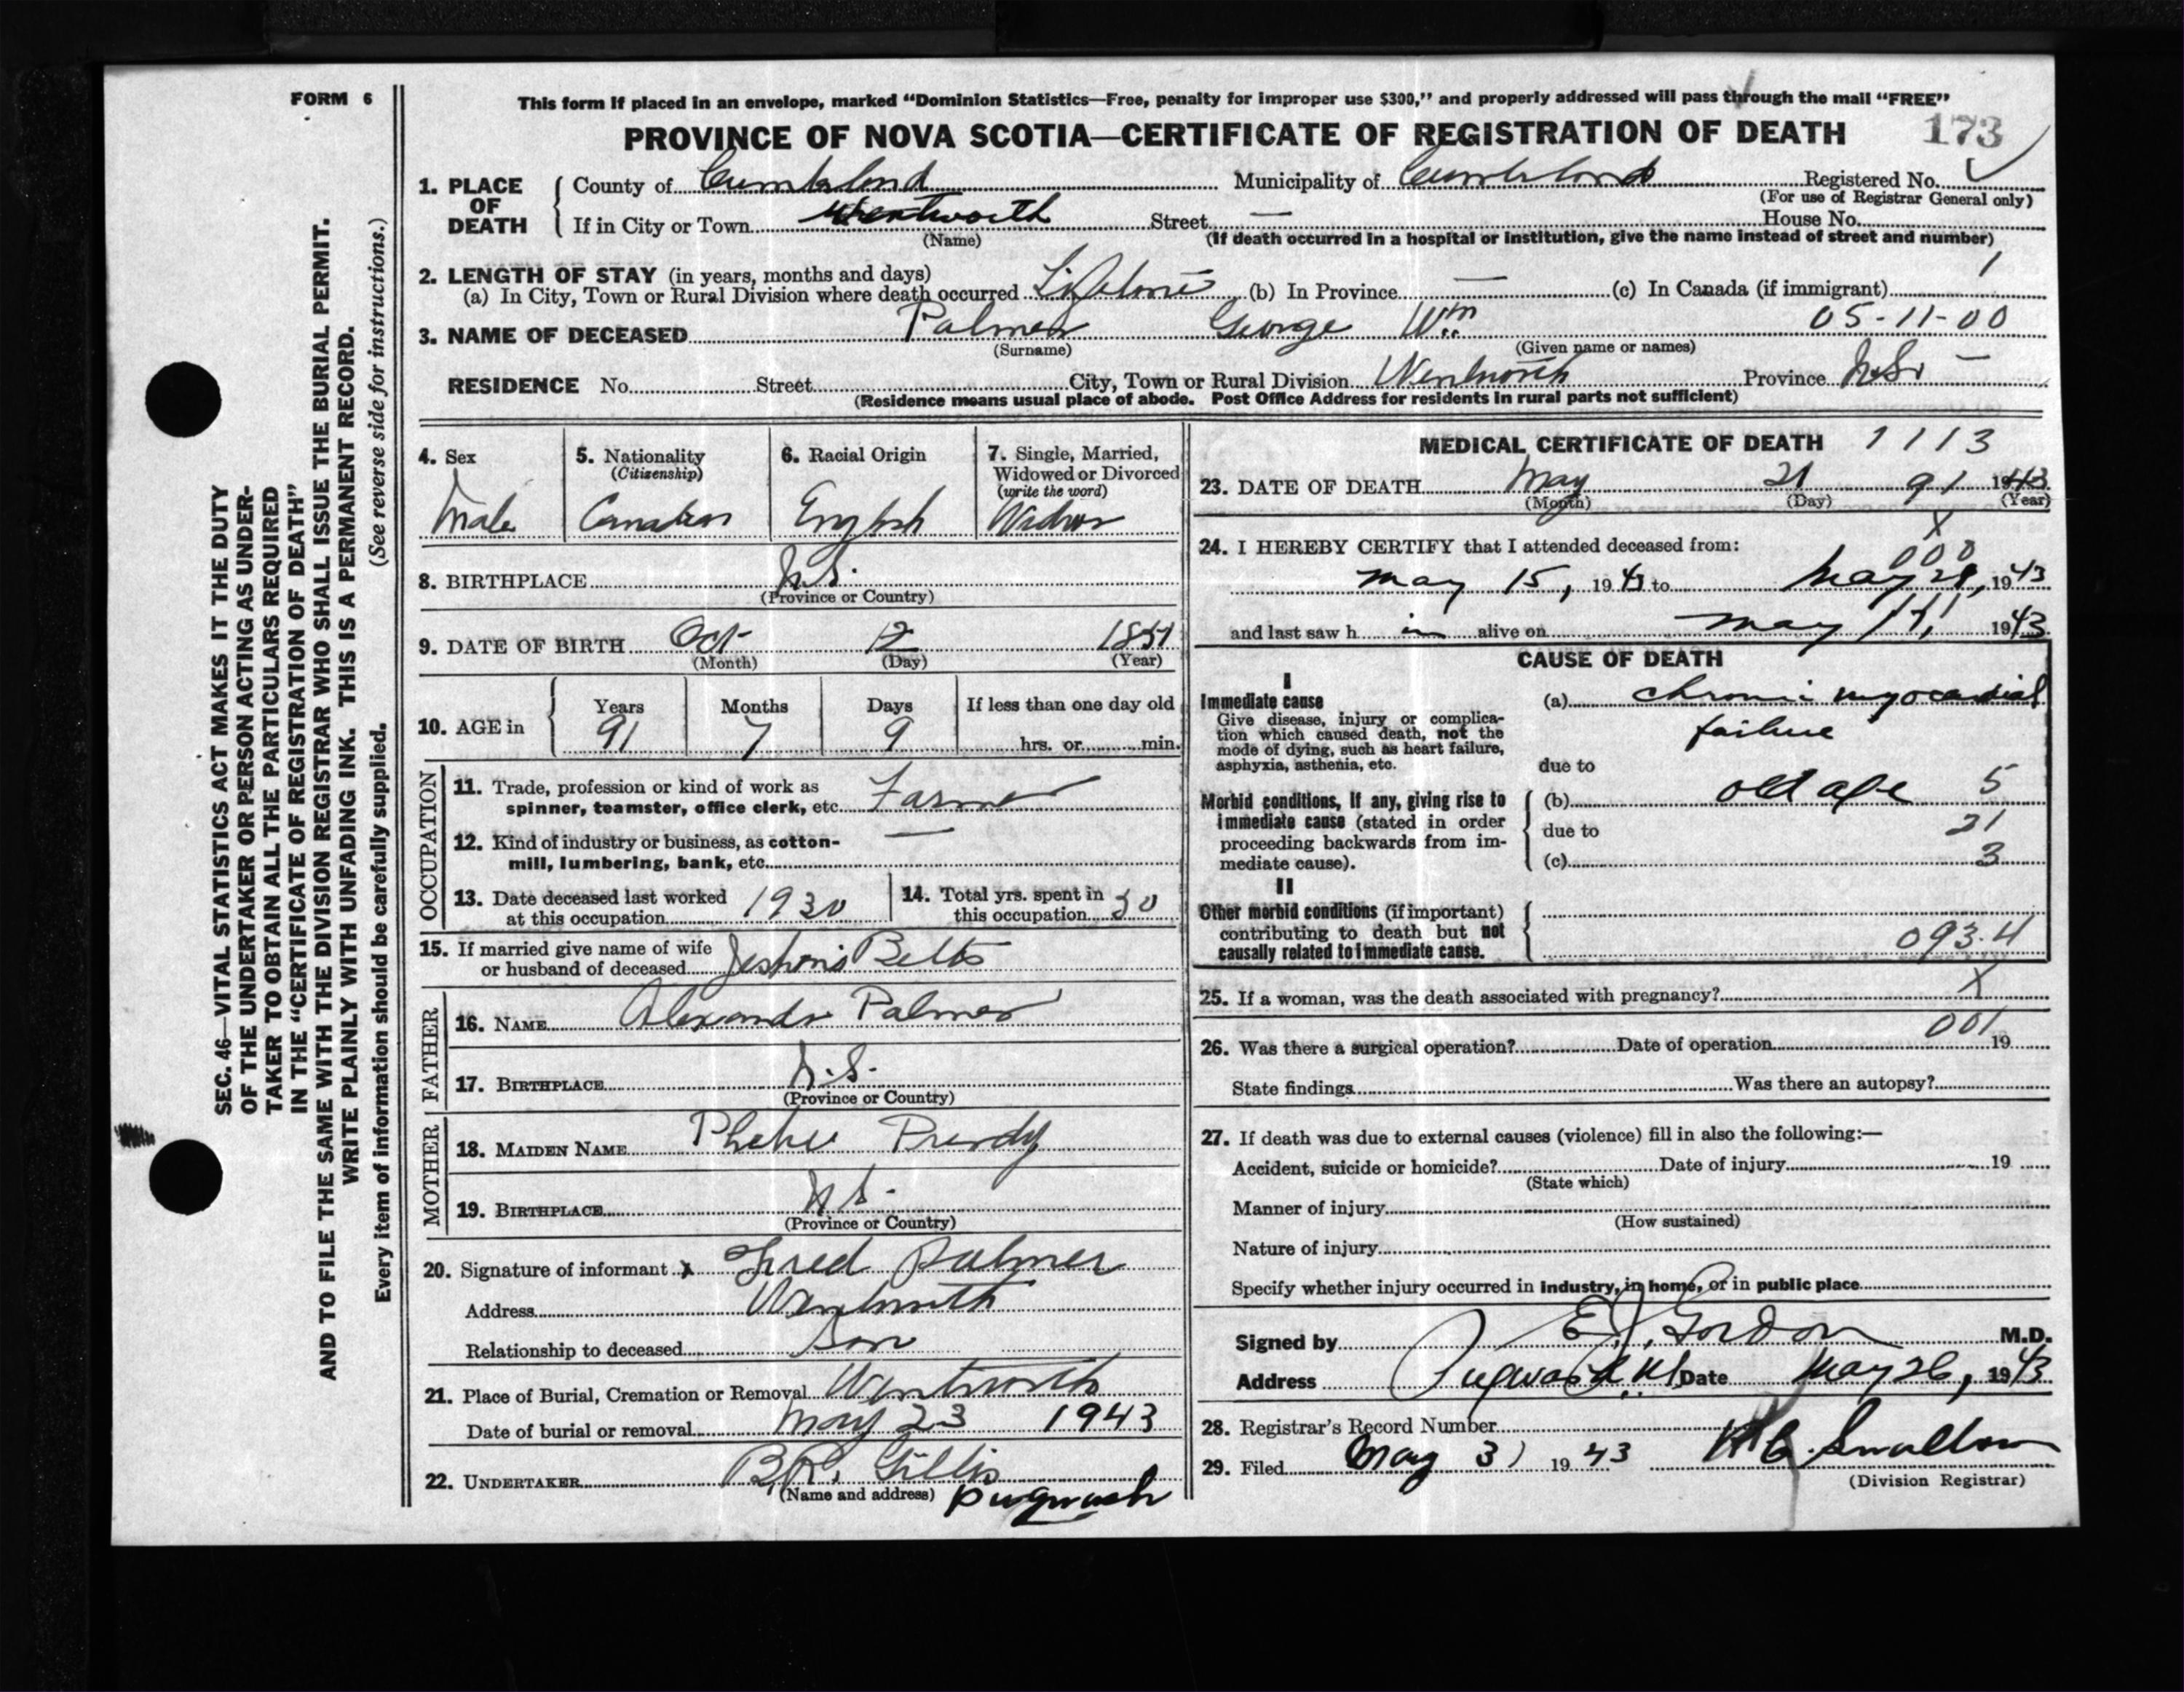 FORM 6
This form if placed in an envelope, marked “Dominion Statistics—Free, penalty for improper use $300,” and properly addressed will pass through the mail “FREE”
PROVINCE OF NOVA SCOTIA—CERTIFICATE OF REGISTRATION OF DEATH 173
1. PLACE OF DEATH County of Cumberland Municipality of Cumberland Registered No.
(For use of Registrar General only)
If in City or Town Wentworth Street — House No.
(Name) (If death occurred in a hospital or institution, give the name instead of street and number)
2. LENGTH OF STAY (in years, months and days) 1
(a) In City, Town or Rural Division where death occurred Lifetime (b) In Province — (c) In Canada (if immigrant)
3. NAME OF DECEASED Palmer George Wm 05-11-00
(Surname) (Given name or names)
RESIDENCE No. Street City, Town or Rural Division Wentworth Province N.S. —
(Residence means usual place of abode. Post Office Address for residents in rural parts not sufficient)
4. Sex Male
5. Nationality (Citizenship) Canadian
6. Racial Origin English
7. Single, Married, Widowed or Divorced (write the word)
8. BIRTHPLACE N.S.
(Province or Country)
9. DATE OF BIRTH Oct 12 1851
(Month) (Day) (Year)
10. AGE in Years 91 Months 7 Days 9 If less than one day old hrs. or min.
OCCUPATION
11. Trade, profession or kind of work as
spinner, teamster, office clerk, etc. Farmer
12. Kind of industry or business, as cotton- —
mill, lumbering, bank, etc.
13. Date deceased last worked at this occupation 1930
14. Total yrs. spent in this occupation
15. If married give name of wife
or husband of deceased Betts
FATHER
16. NAME Alexander Palmer
17. BIRTHPLACE N.S.
(Province or Country)
MOTHER
18. MAIDEN NAME Phebe Purdy
19. BIRTHPLACE N.S.
(Province or Country)
20. Signature of informant x Fred Palmer
Address Wentworth
Relationship to deceased Son
21. Place of Burial, Cremation or Removal Wentworth
Date of burial or removal May 23 1943
22. UNDERTAKER B.R. Gillis
(Name and address) Pugwash
MEDICAL CERTIFICATE OF DEATH 1113
23. DATE OF DEATH May 21 91 1943
(Month) (Day) (Year)
X
24. I HEREBY CERTIFY that I attended deceased from: 000
May 15, 1943 to May 21, 1943
and last saw h im alive on May 1943
CAUSE OF DEATH
I
Immediate cause
Give disease, injury or complica-
tion which caused death, not the
mode of dying, such as heart failure,
asphyxia, asthenia, etc.
(a) chronic myocardial
failure
due to
Morbid conditions, if any, giving rise to
immediate cause (stated in order
proceeding backwards from im-
mediate cause).
(b) old age 5
due to 21
(c) 3
II
Other morbid conditions (if important)
contributing to death but not
causally related to immediate cause.
093.4
25. If a woman, was the death associated with pregnancy? X
001
26. Was there a surgical operation? Date of operation 19
State findings Was there an autopsy?
27. If death was due to external causes (violence) fill in also the following:—
Accident, suicide or homicide? Date of injury 19
(State which)
Manner of injury
(How sustained)
Nature of injury
Specify whether injury occurred in industry, in home, or in public place
Signed by E. J. Gordon M.D.
Address Pugwash, N.S. Date May 26, 1943
28. Registrar's Record Number
29. Filed May 31 1943 Swallow
(Division Registrar)
SEC. 46—VITAL STATISTICS ACT MAKES IT THE DUTY
OF THE UNDERTAKER OR PERSON ACTING AS UNDER-
TAKER TO OBTAIN ALL THE PARTICULARS REQUIRED
IN THE “CERTIFICATE OF REGISTRATION OF DEATH”
AND TO FILE THE SAME WITH THE DIVISION REGISTRAR WHO SHALL ISSUE THE BURIAL PERMIT.
WRITE PLAINLY WITH UNFADING INK. THIS IS A PERMANENT RECORD.
Every item of information should be carefully supplied. (See reverse side for instructions.)